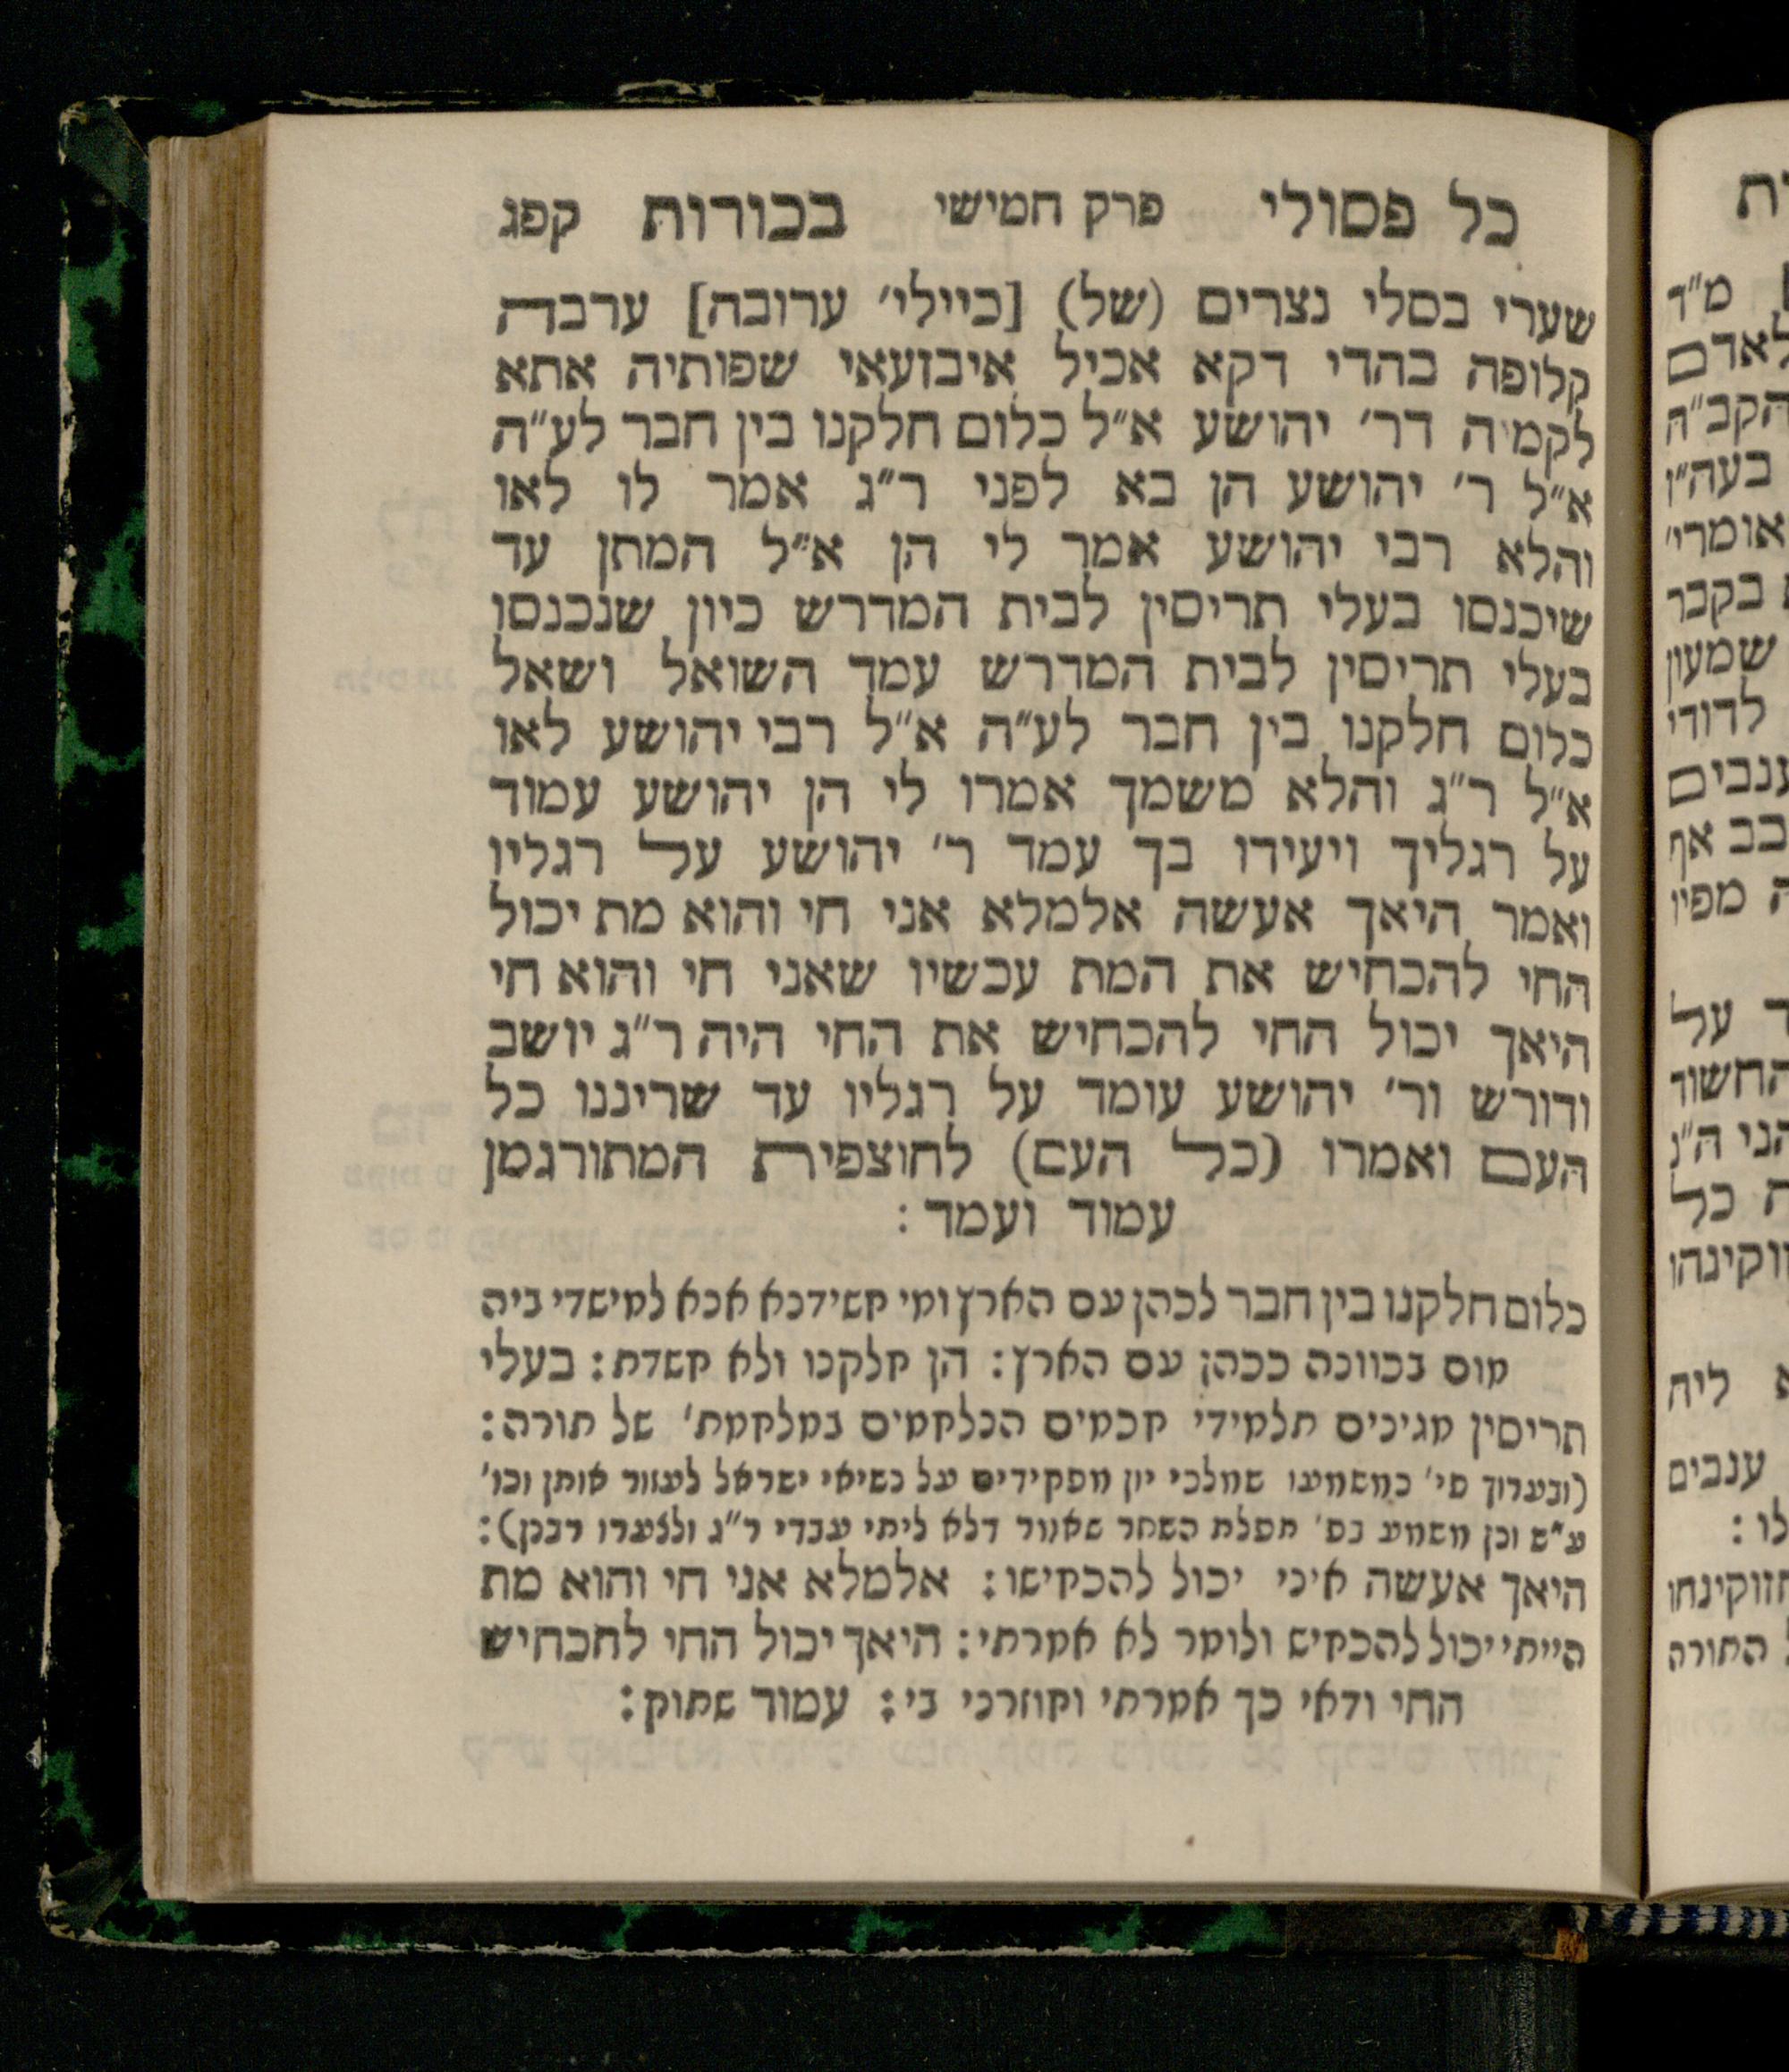 כל פסולי פרק חמישי בכורות קפג
שערי בסלי נצרים (של) [כיילי׳ ערובה] ערבה
קלופה בהדי דקא אכיל איבזעאי שפותיה אתא
לקמיה דר׳ יהושע א״ל כלום חלקנו בין חבר לע״ה
א״ל ר׳ יהושע הן בא לפני ר״ג אמר לו לאו
והלא רבי יהושע אמר לי הן א״ל המתן עד
שיכנסו בעלי תריסין לבית המדרש כיון שנכנסו
בעלי תריסין לבית המדרש עמד השואל ושאל
כלום חלקנו בין חבר לע״ה א״ל רבי יהושע לאו
א״ל ר״ג והלא משמך אמרו לי הן יהושע עמוד
על רגליך ויעידו בך עמד ר׳ יהושע על רגליו
ואמר היאך אעשה אלמלא אני חי והוא מת יכול
החי להכחיש את המת עכשיו שאני חי והוא חי
היאך יכול החי להכחיש את החי היה ר״ג יושב
ודורש ור׳ יהושע עומד על רגליו עד שריננו כל
העם ואמרו (כל העם) לחוצפית המתורגמן
עמוד ועמד :
כלום חלקנו בין חבר לכהן עם הארץ ומי חשידנא אנא למישדי ביה
מום בכוונה ככהן עם הארץ: הן חלקנו ולא חשדת: בעלי
תריסין מגינים תלמידי חכמים הנלחמים במלחמת׳ של תורה:
(ובערוך פי׳ כמשמעו שמלכי יון מפקידים על נשיאי ישראל לעזור אותן וכו׳
ע״ש וכן משמע בפ׳ תפלת השחר שאמר דלא ליתי עבדי ר״ג ולצערו רבנן):
היאך אעשה איני יכול להכחישו: אלמלא אני חי והוא מת
הייתי יכול להכחיש ולומר לא אמרתי: היאך יכול החי להכחיש
החי ודאי כך אמרתי וחוזרני בי: עמוד שתוק:
ת
מ״ד
לאדם
הקב״ה
בעה״ו
אומרי׳
בקבר
שמעון
לדודי
ענבים
בב אף
ה מפיו
ד על
החשוד
הני ה״נ
ה כל
ליה
ענבים
לו :
התורה